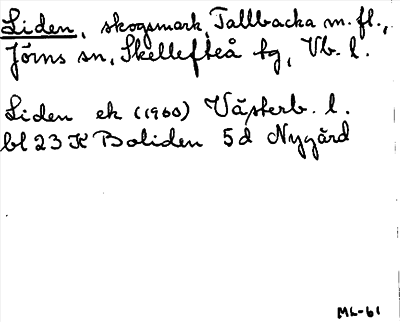 Liden, skogsmark, Tallbacka m.fl.,
Jörns sn, Skellefteå tg, Vb. l.
Liden ek (1960) Västerb. l.
bl 23 K Boliden 5d Nygård
ML-61